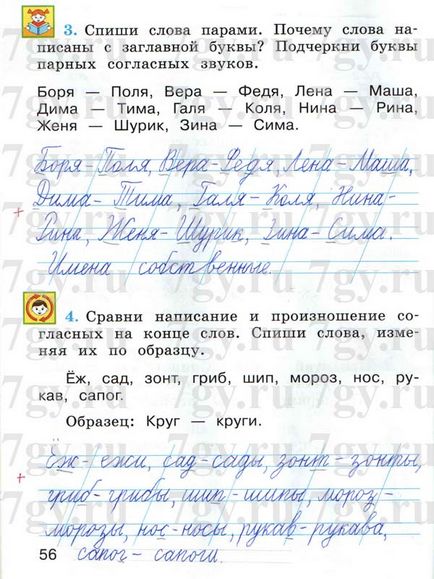 3. Спиши слова парами. Почему слова на-
писаны с заглавной буквы? Подчеркни буквы
парных согласных звуков.
Боря — Поля, Вера — Федя, Лена — Маша,
Дима — Тима, Галя — Коля, Нина — Рина,
Женя — Шурик, Зина — Сима.
Боря-Поля, Вера-Федя, Лена-Маша,
Дима-Тима, Галя-Коля, Нина-
Рина, Женя-Шурик, Зина-Сима.
Имена собственные.
4. Сравни написание и произношение со-
гласных на конце слов. Спиши слова, изме-
няя их по образцу.
Ёж, сад, зонт, гриб, шип, мороз, нос, ру-
кав, сапог.
Образец: Круг — круги.
Ёж-ежи, сад-сады, зонт-зонты,
гриб-грибы, шип-шипы, мороз-
морозы, нос-носы, рукав-рукава,
56 сапог-сапоги.
7gy.ru